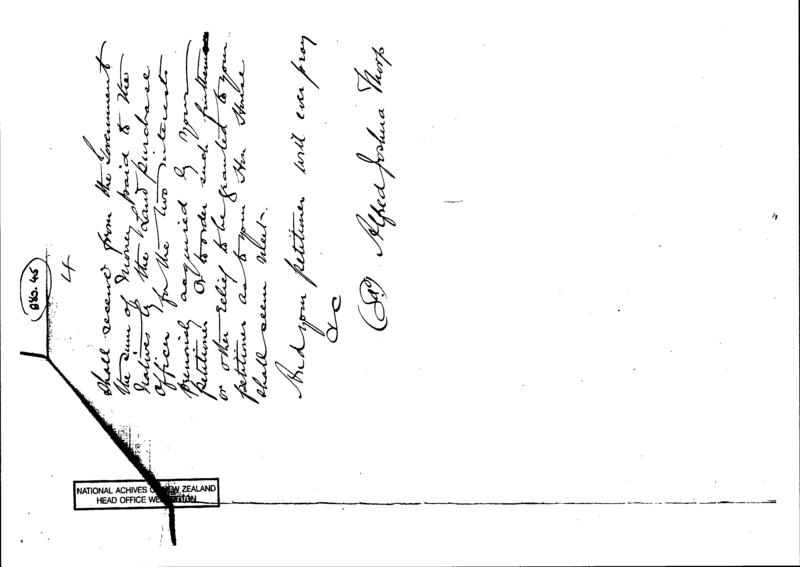 860.45
4
shall receive from the Government
the sum of money paid to the
Natives by the Land purchase
Officer for the two interests
previously acquired by your
petitioner or to order such further
or other relief to be granted to your
petitioner as to your Hon House
shall seem meet.
And your petitioner will ever pray
&c
(Sg) Alfred Joshua Thorp
NATIONAL ACHIVES OF NEW ZEALAND
HEAD OFFICE WELLINGTON